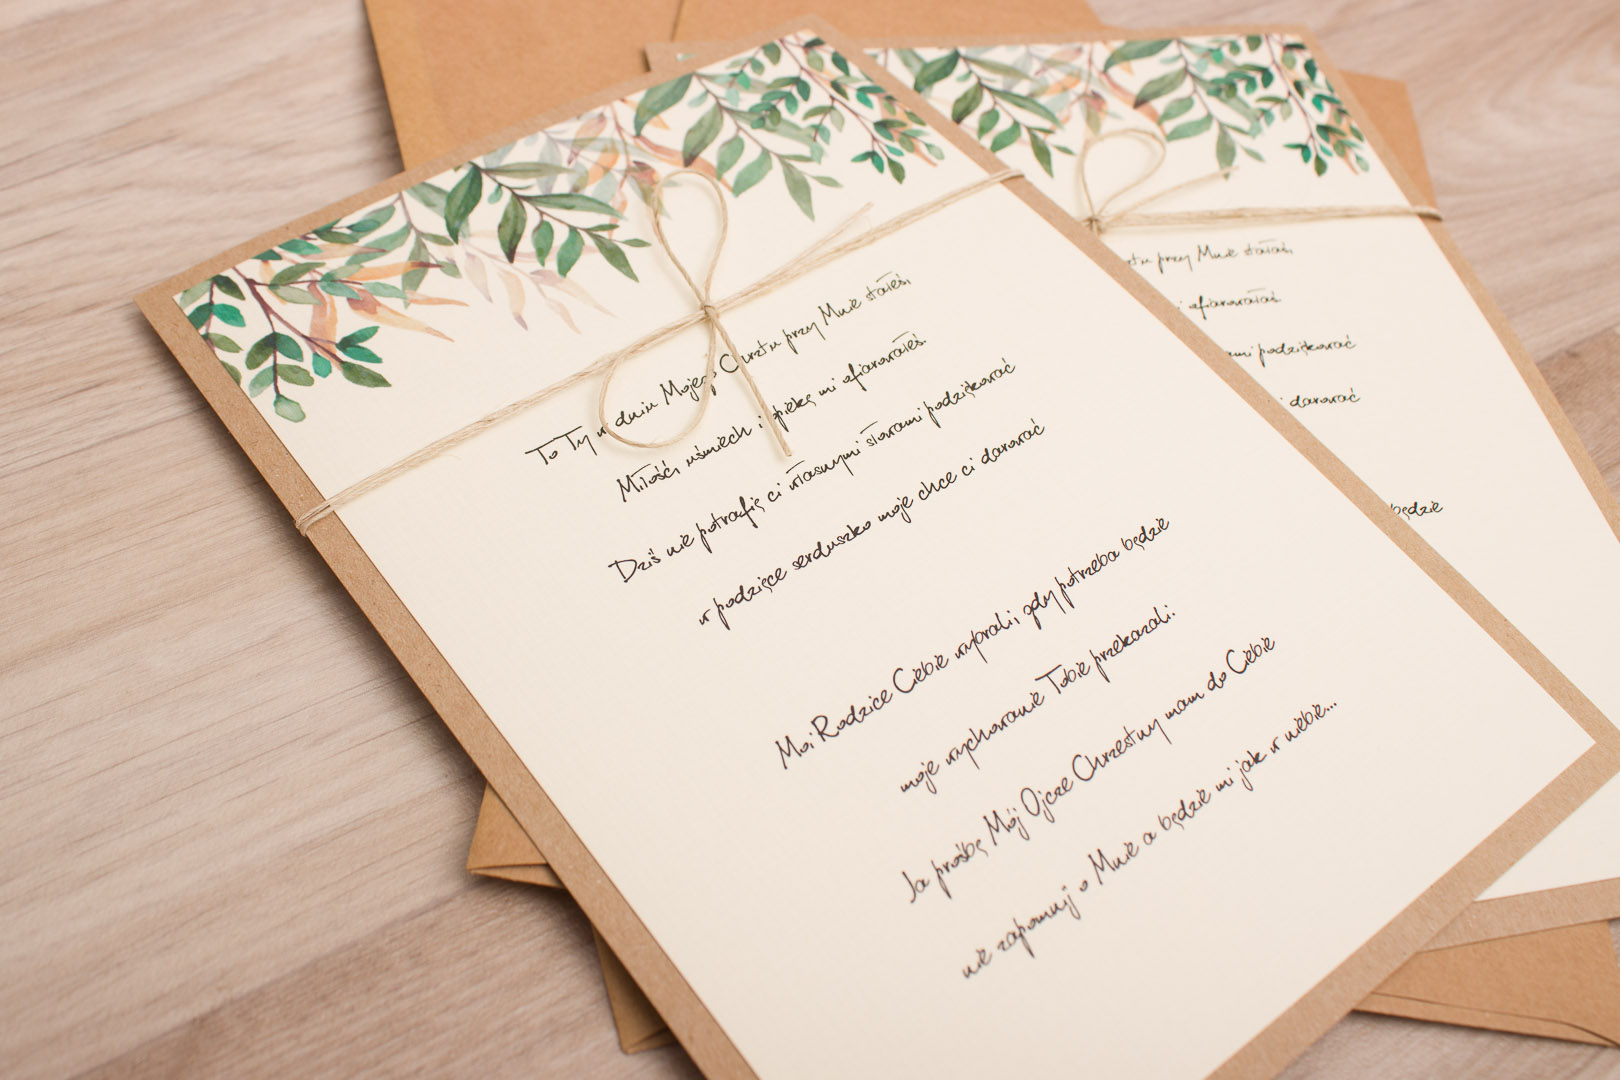 To Ty w dniu Mojego Chrztu przy Mnie stałeś
Miłość, uśmiech i opiekę mi ofiarowałeś.
Dziś nie potrafię ci własnymi słowami podziękować
w podzięce serduszko moje chce ci darować
Moi Rodzice Ciebie wybrali, gdy potrzeba będzie
moje wychowanie Tobie przekazali.
Ja prośbę Mój Ojcze Chrzestny mam do Ciebie
nie zapomnij o Mnie a będzie mi jak w niebie...
przy Mnie stałaś
i ofiarowałaś
podziękować
i darować
będzie